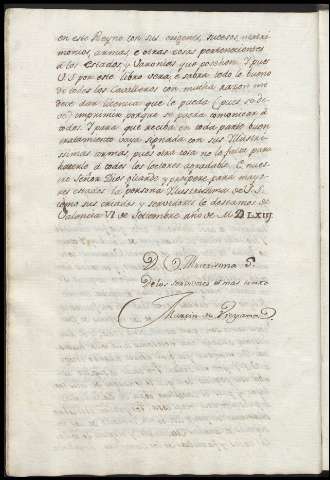 en este Reyno con sus origenes, sucesos, matri
monios, armas, e otras cosas pertenecientes
à los Estados, y Varonias que poseheen. I pues
V.S. por este libro verà, e sabrà todo lo bueno
de todos los Cavalleros con mucha razon me
deve dar licencia que le pueda
imprimir porque se pueda comunicar à
todos. I para que reciba en toda parte buen
tratamiento vaya signado con sus Illustris
simas armas, pues otra cosa no le falta para
hacerlo à todos los lectores agradable. E nues
tro Señor Dios guarde y prospere para mayo
res estados la persona Illustrissima de V.S.
como sus criados y servidores lo deseamos de
Valencia VI de Setiembre año de M.D.LXIII.
D. V. Illustrissima S.
De los servidores el mas cierto
Martin de Viciyana